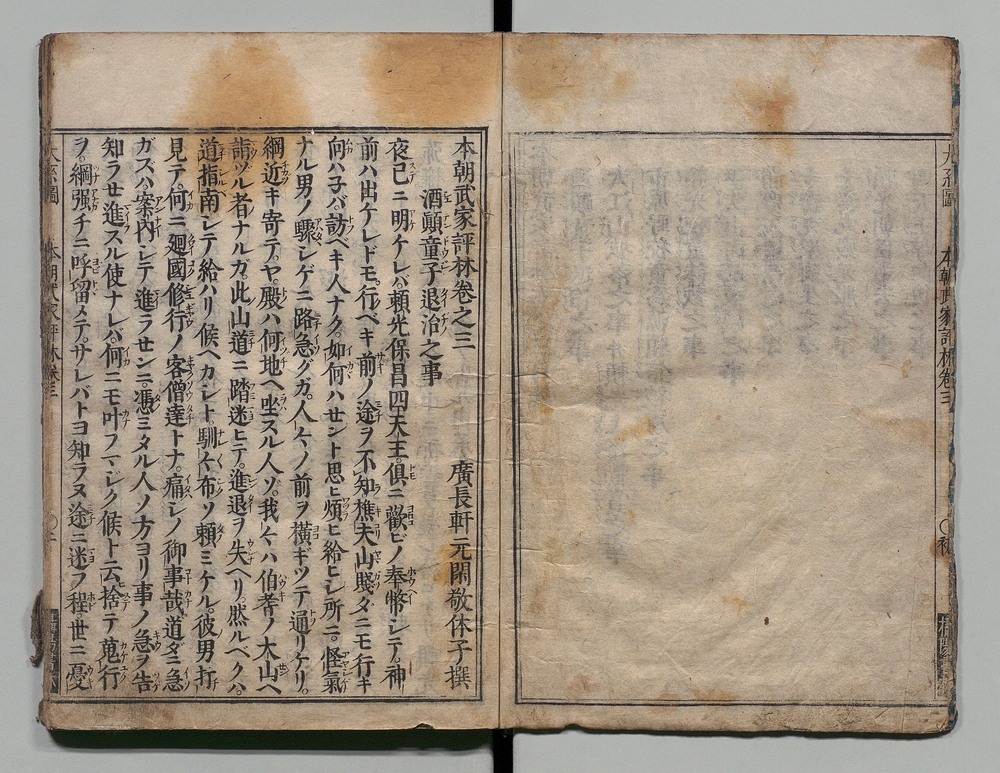 本朝武家評林卷之三
酒顚童子退治之事
廣長軒元閑敬休子撰
夜已ニ明ケレバ。賴光保昌四天王。俱ニ歡ビノ奉幣シテ。神
前ハ出ケレドモ。行ベキ前ノ途ヲ不知。樵夫山賤ダニモ行キ
向ハ子バ。訪ベキ人ナク。如何ハセント思ヒ煩ヒ給ヒシ所ニ。怪氣
ナル男ノ驟シゲニ路急グガ。人々ノ前ヲ橫ギツテ通リケリ。
綱近キ寄テ。ヤ。殿ハ何地ヘ坐スル人ゾ。我々ハ伯耆ノ大山ヘ
詣ヅル者ナルガ。此山道ニ踏迷ヒテ。進退ヲ失ヘリ。然ルベクハ。
道指南シテ給ハリ候ヘカシト。馴々布ソ賴ミケル。彼男打
見テ。何ニ廻國修行ノ客僧達トナ。痛シノ御事哉。道ダニ急
ガズハ。案內シテ進ラセンニ。憑ミタル人ノ方ヨリ事ノ急ヲ告
知ラセ進スル使ナレバ。何ニモ叶フマジク候ト云捨テ蒐行
ヲ。綱强チニ呼留メテ。サレバトヨ知ラヌ途ニ迷フ程。世ニ憂
本朝武家評林卷三